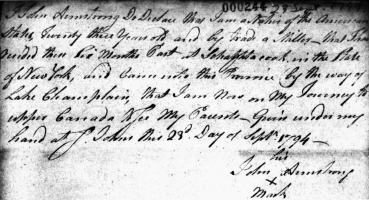 000244 23 Sept.
I John Armstrong Do Declare that I am a Native of the American
States, Twenty three Years old and by trade a Miller – that I have
resided these Six Months Past at Schaffticocook in the State
of New York, and came into this Province by the way of
Lake Champlain, that I am Now on My Journey to
upper Canada to see My Parents – Given under my
hand at St. Johns this 23d. Day of Septr. 1794 –
his
John Armstrong
X
Mark